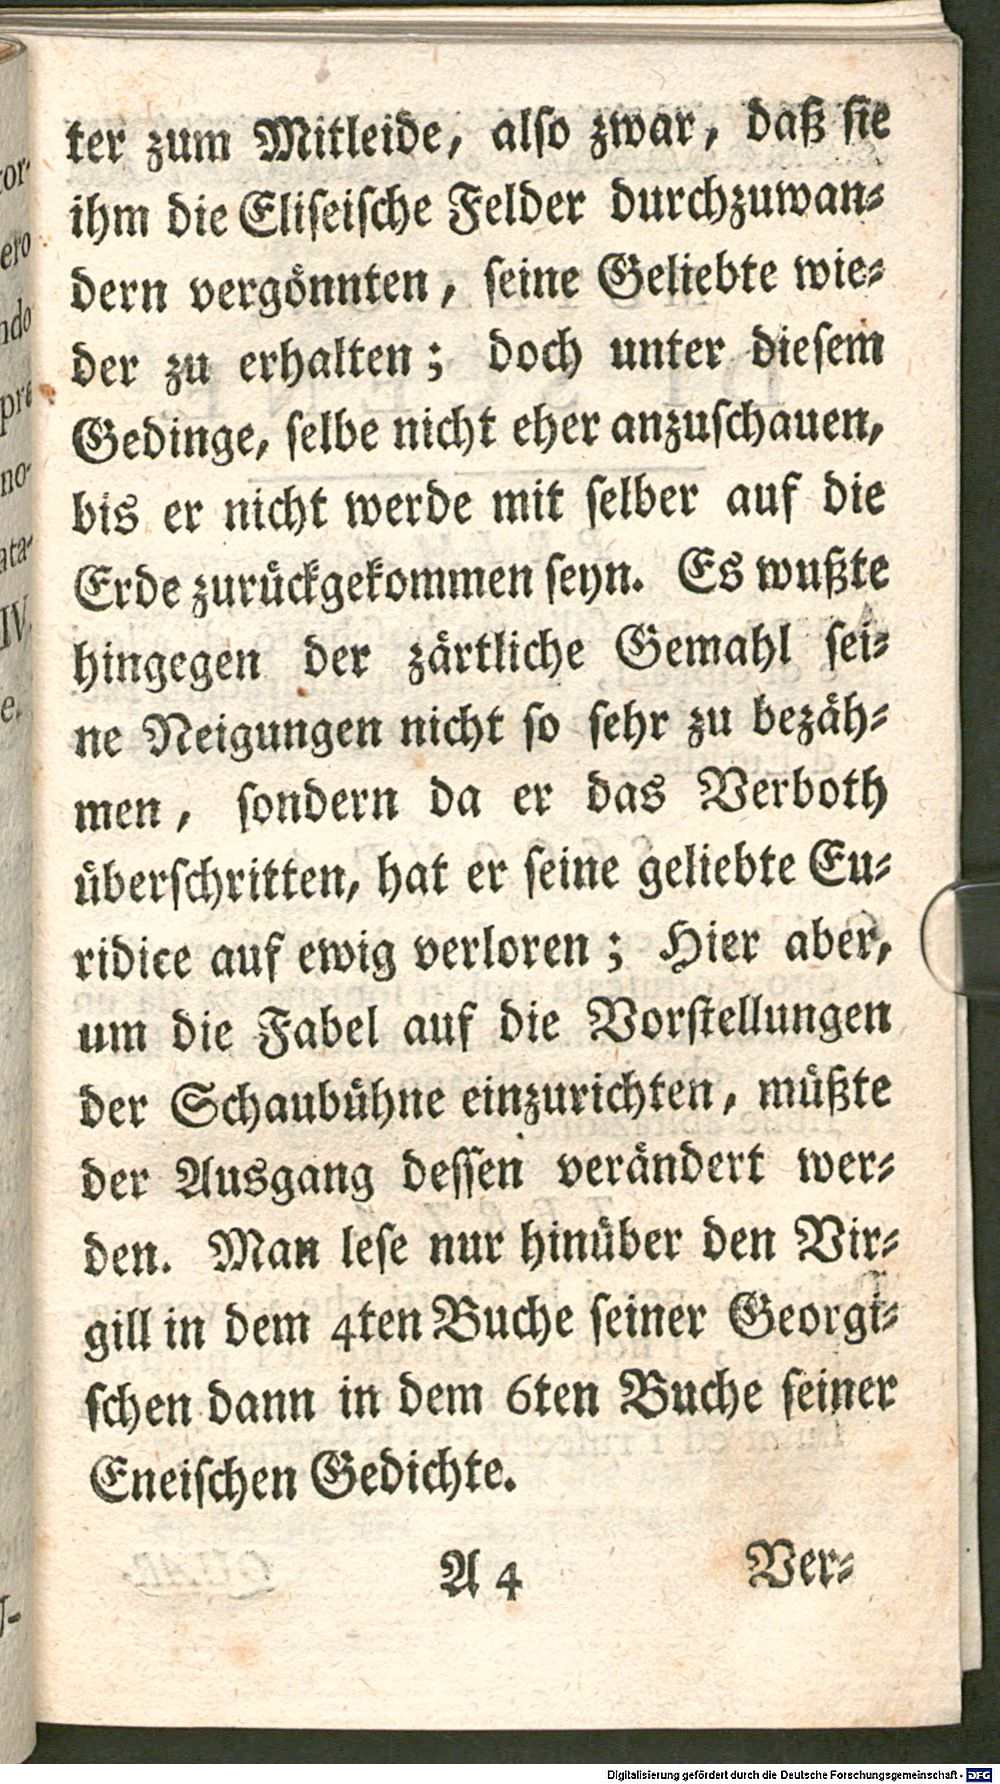 ter zum Mitleide, also zwar, daß sie
ihm die Eliseische Felder durchzuwan-
dern vergönnten, seine Geliebte wie-
der zu erhalten; doch unter diesem
Gedinge, selbe nicht eher anzuschauen,
bis er nicht werde mit selber auf die
Erde zurückgekommen seyn. Es wußte
hingegen der zärtliche Gemahl sei-
ne Neigungen nicht so sehr zu bezäh-
men, sondern da er das Verboth
überschritten, hat er seine geliebte Eu-
ridice auf ewig verloren; Hier aber,
um die Fabel auf die Vorstellungen
der Schaubühne einzurichten, müßte
der Ausgang dessen verändert wer-
den. Man lese nur hinüber den Vir-
gill in dem 4ten Buche seiner Georgi-
schen dann in dem 6ten Buche seiner
Eneischen Gedichte.
A 4 Ver-
Digitalisierung gefördert durch die Deutsche Forschungsgemeinschaft - DFG